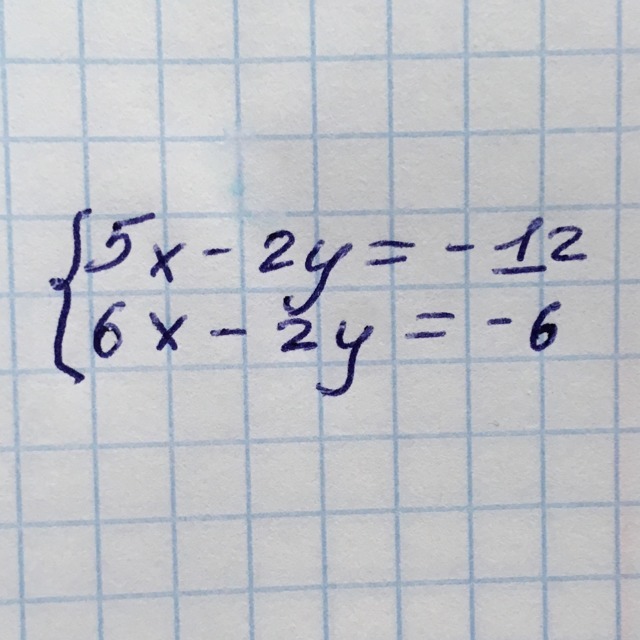 5x - 2y = - 12
6x - 2y = - 6